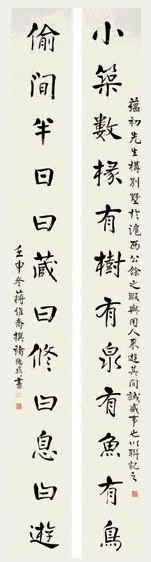 小築數椽有樹有泉有魚有鳥
蘊初先生構別墅於滬西公餘之暇與同人來遊其間誠盛事也以聯記之
偷閒半日曰藏曰修曰息曰遊
壬申冬蔣維喬撰 書